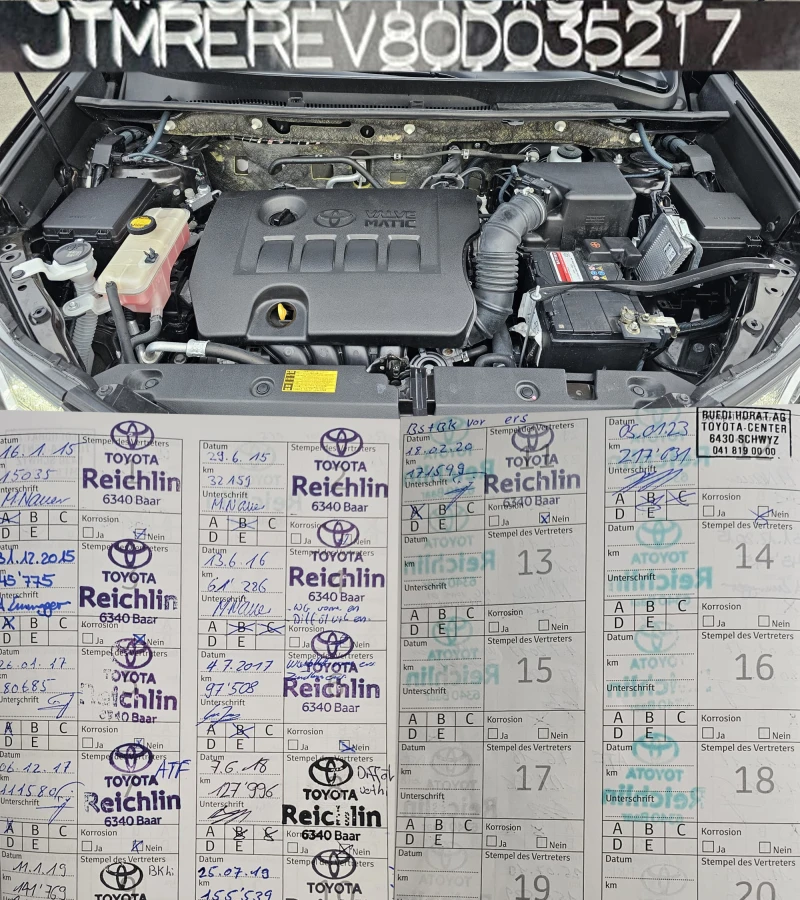 JTMREREV80D035217
VALVE
MATIC
16.1.15
Stempel des Vertreters
km
15035
TOYOTA
Reichlin
6340 Baar
M.Nauer
A B C
D E
Korrosion
Ja
Nein
29.6.15
km
32159
Stempel des Vertreters
TOYOTA
Reichlin
6340 Baar
A B C
D E
Korrosion
Ja
31.12.2015
km
45'775
TOYOTA
Reichlin
6340 Baar
Korrosion
Ja
Nein
D E
13.6.16
km
61'286
Unterschrift
TOYOTA
Reichlin
6340 Baar
A B C
D E
26.01.17
km
80685
Unterschrift
TOYOTA
Reichlin
6340 Baar
A B C
D E
Korrosion
Ja
Nein
4.7.2017
km
97'508
TOYOTA
Reichlin
6340 Baar
A B C
D E
Korrosion
Ja
Nein
Datum
06.12.17
km
111580
Unterschrift
TOYOTA
ATF
Reichlin
6340 Baar
A B C
D E
Korrosion
Ja
Nein
Datum
7.6.18
km
127'996
Unterschrift
TOYOTA
Reichlin
6340 Baar
A B
D E
Korrosion
Ja
Nein
Datum
11.1.19
km
141'769
Stempel des Vertreters
TOYOTA
Datum
25.07.19
km
155'539
Stempel des Vertreters
TOYOTA
Datum
18.02.20
km
171599
Unterschrift
TOYOTA
Reichlin
6340 Baar
A B C
D E
Korrosion
Ja
Nein
Datum
05.01.23
km
217'031
Unterschrift
RUEDI HORAT AG
TOYOTA-CENTER
6430 SCHWYZ
041 819 00 00
A B C
D E
Korrosion
Ja
Nein
Datum
km
Unterschrift
Stempel des Vertreters
13
A B C
D E
Korrosion
Ja
Nein
Datum
km
Unterschrift
Stempel des Vertreters
14
A B C
D E
Korrosion
Ja
Nein
Datum
km
Unterschrift
Stempel des Vertreters
15
A B C
D E
Korrosion
Ja
Nein
Datum
km
Unterschrift
Stempel des Vertreters
16
A B C
D E
Korrosion
Ja
Nein
Datum
km
Unterschrift
Stempel des Vertreters
17
A B C
D E
Korrosion
Ja
Nein
Datum
km
Unterschrift
Stempel des Vertreters
18
A B C
D E
Korrosion
Ja
Nein
Datum
km
Stempel des Vertreters
19
Datum
km
Stempel des Vertreters
20